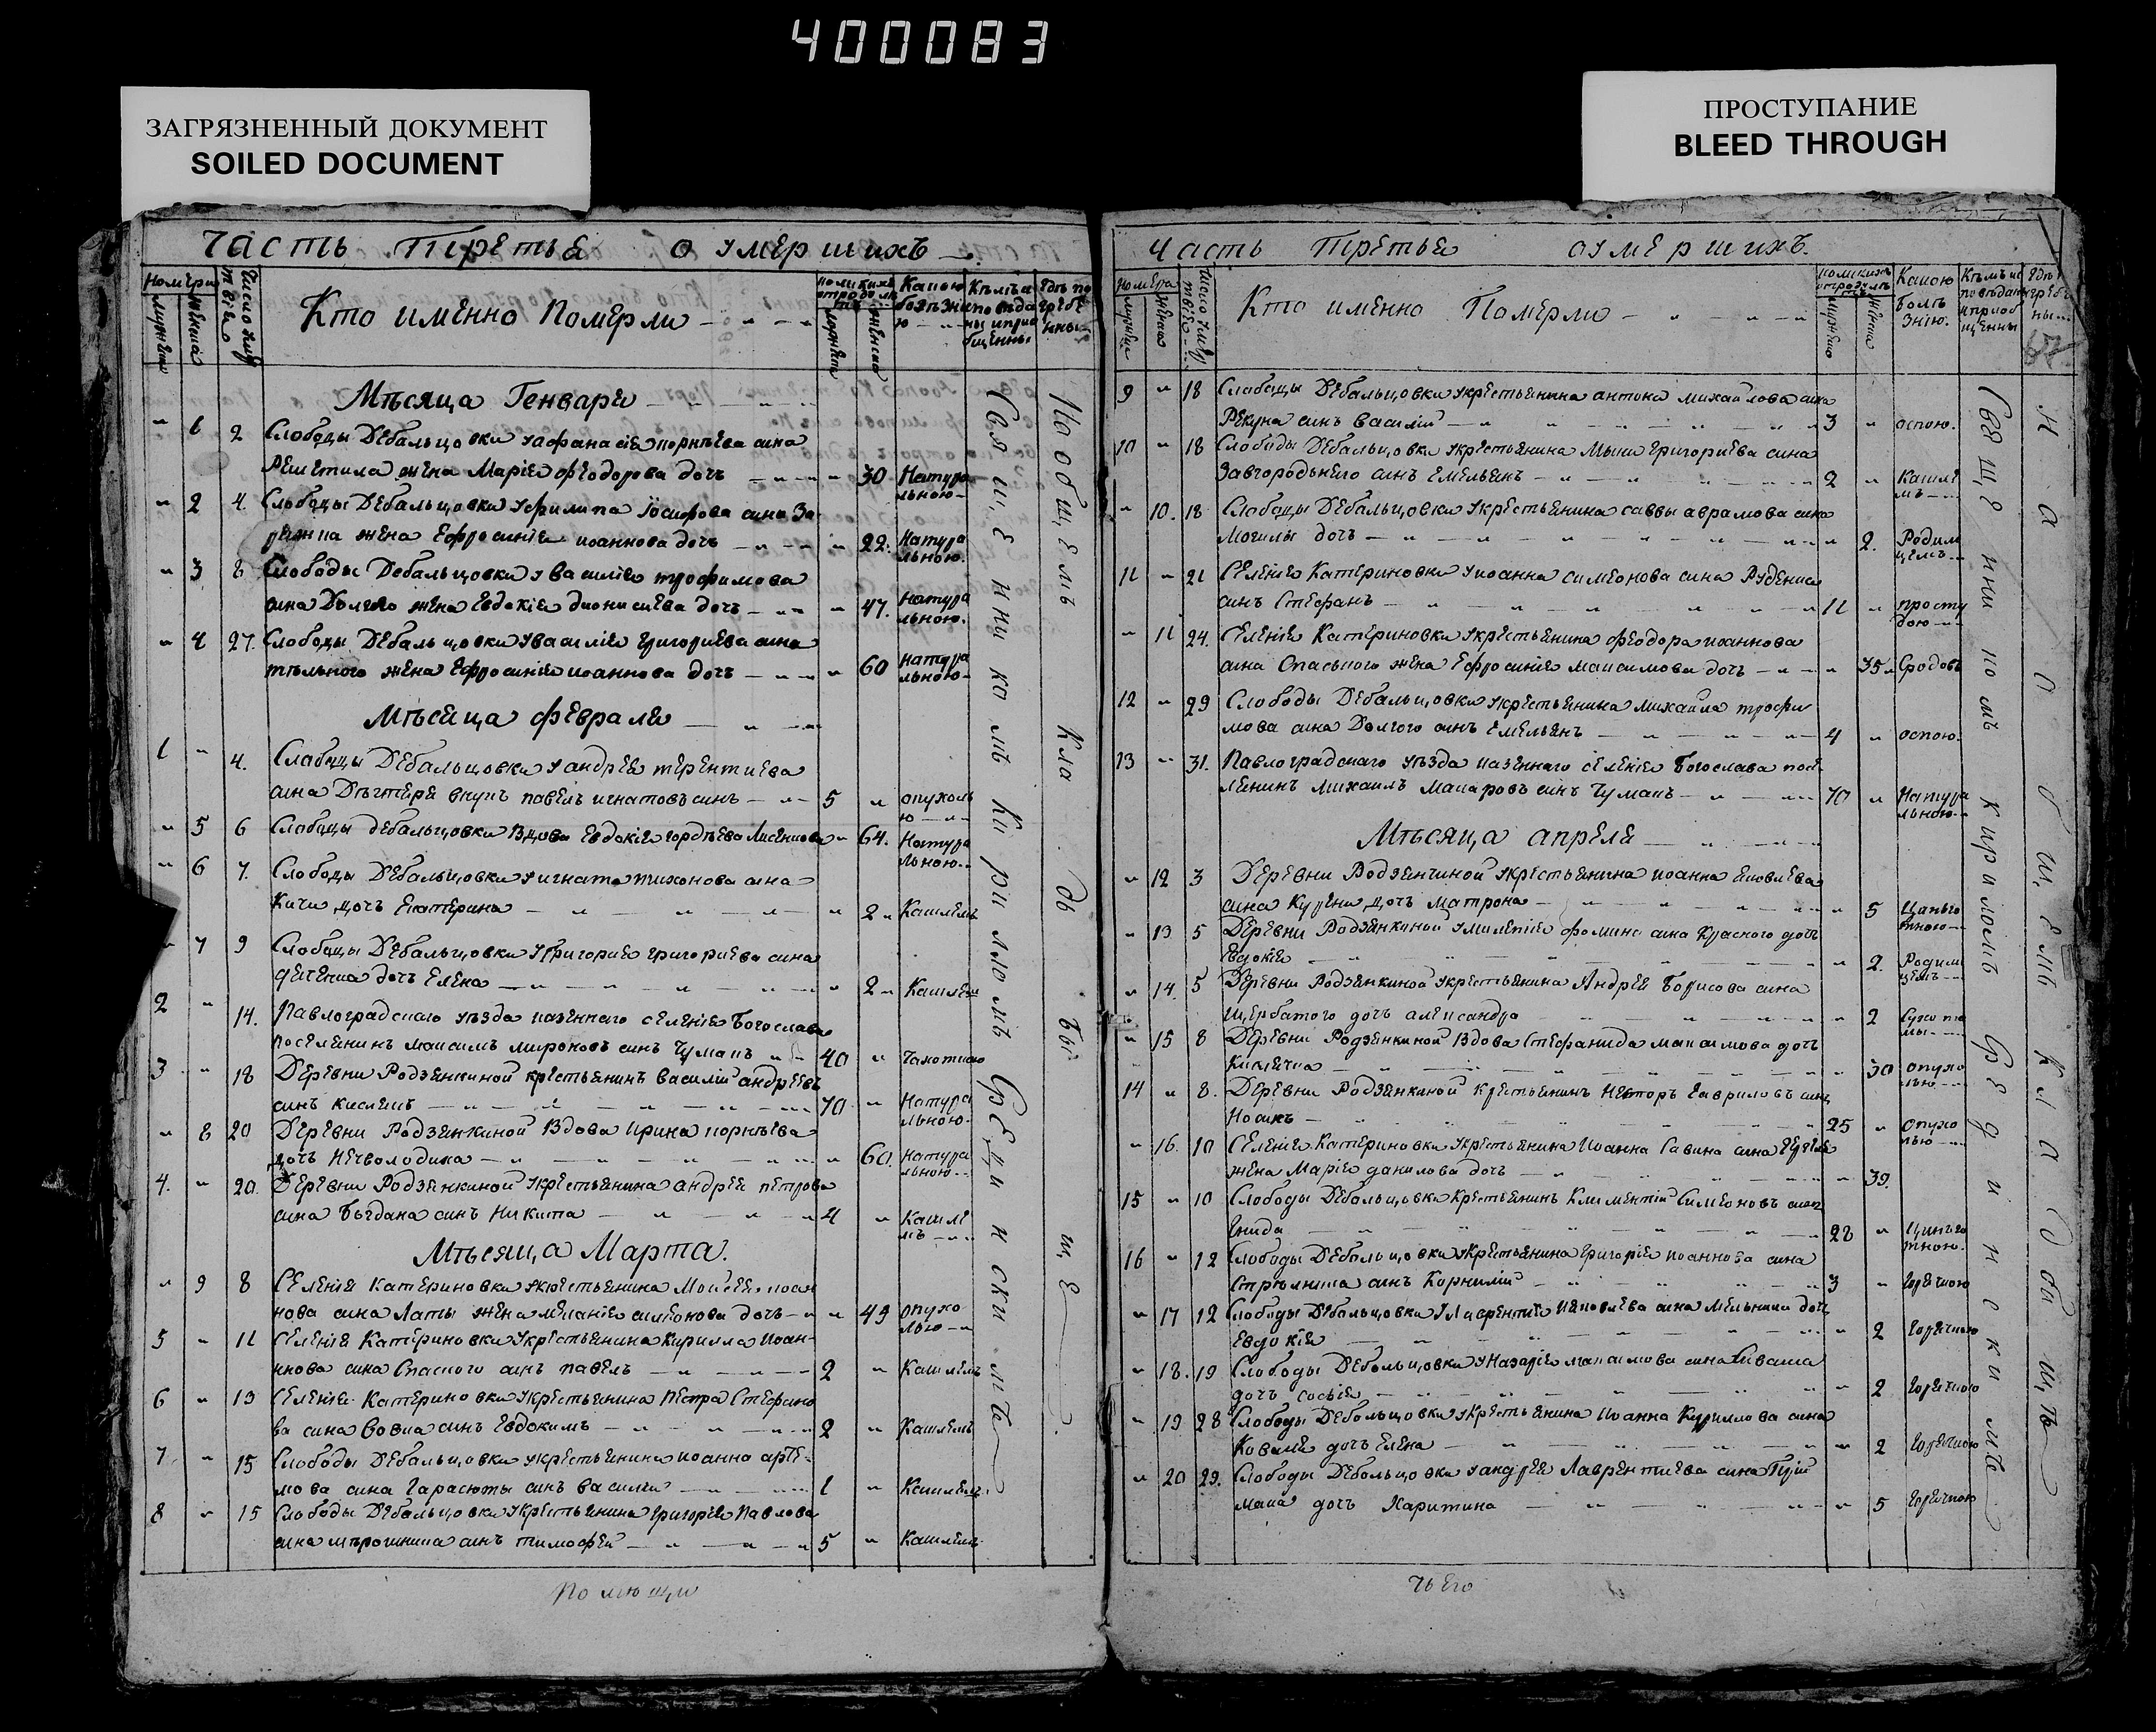 400083
ЗАГРЯЗНЕННЫЙ ДОКУМЕНТ
SOILED DOCUMENT
ПРОСТУПАНИЕ
BLEED THROUGH
Часть Третье о умершихъ
Номера
Кто именно Померли
Мѣсяца Генваря
1 2 Слободы Дебальцовки у афанасія корнѣева сина
Решетила жена Маріе феодорова дочь 30 Натура
льною
2 4. Слободы Дебальцовки у филипа Іосифова сина За
жена Ефросиніе иоаннова дочь 22. Натура
льною.
3 8 Слободы Дебальцовки у Василіе трофимова
сина Долгого жена Евдокіе дионисиева дочь 47. Натура
льною.
4 27. Слободы Дебальцовки у василіе григориева сина
тѣльного жена Ефросиніе иоаннова дочь 60 натура
льною
Мѣсеца феврале
1 4. Слабоды Дебальцовки у андрее терентиева
сина Дѣгтере внукъ павелъ игнатовъ синъ 5 опухоль
ю
5 6 Слабоды дебальцовки вдова Евдокіе гордѣева Лисенкова 64. Натура
льною
6 7. Слободы Дебальцовки у игната тихонова сина
Кичи дочь Екатерина 2 Кашлемъ
7 9 Слабоды Дебальцовки у Григорие григориева сина
дочь Елена 2 Кашлем
2 14. Павлоградскаго уезда казеннаго селеніе Богослава
поселенинъ максимъ мироновъ синъ Чумакъ 40 Чахоткою
3 18 Деревни Родзенкиной крестьенинъ Василій андреевъ
синъ кислецъ 70 Натура
льною
8 20 Деревни Родзенкиной Вдова Ирина корнѣева
дочь Нечволодина 60. натура
льною
4. 20. Деревни Родзенкиной у крестьенина андрее петрова
сина Богдана синъ Никита 4 Кашле
мъ
Мѣсяца Марта.
9 8 Селеніе Катериновки у крестьенина Моисее иоан
нова сина Латы жена меланіе симеонова дочь 49 опухо
лью
5 11 Селеніе Катериновки у крестьенина Кирилла иоан
нова сина Спасного синъ павелъ 2 Кашлемъ
6 13 Селеніе Катериновки у крестьенина Петра Стефано
ва сина вовка синъ Евдокимъ 2 Кашлемъ
7 15 Слободы Дебальцовки у крестьенина иоанна арте
мова сина Гарасюты синъ василій 1 Кашлемъ
8 15 Слободы Дебальцовки у крестьенина григорие павлова
сина мѣрошника синъ тимофей 5 Кашлемъ
Священникомъ Кирилломъ Средински мъ
На общемъ кладбыще
Часть третье о умершихъ.
Номера
Кто именно Померли
9 18 Слабоды Дебальцовки у крестьенина антона михайлова сина
Рекуна синъ василій 3 оспою.
10 18 Слободы Дебальцовки у крестьенина Мини григориева сина
Завгородьнего синъ Емельенъ 2 Кашле
мъ
10. 18 Слободы Дебальцовки у крестьенина саввы аврамова сина
Могилы дочь 2. Родим
цемъ
11 21 Селеніе Катериновки у иоанна симеонова сина Руденка
синъ Стефанъ 11 просту
дою
11 24. Селеніе Катериновки у крестьенина феодора иоаннова
сина Спасьного жена Ефросиніе максимова дочь 35 Сродовъ
12 29 Слободы Дебальцовки у крестьенина михаила трофи
мова сина Долгого синъ Емельенъ 4 оспою.
13 31. Павлоградскаго уѣзда казеннаго селеніе Богослава посе
ленинъ михаилъ макаровъ синъ Чумакъ 70 Натура
льною
Мѣсяца апреле
12 3 Деревни Родзенкиной у крестьенина иоанна ековлева
сина Курени дочь матрона 5 Цинго
тною
13 5 Деревни Родзенкиной у мелентіе фомина сина Красного дочь
Евдокіе 2. Родим
цемъ
14. 5 Деревни Родзенкиной у крестьенина Андрее Борисова сина
Щербатого дочь александра 2
15 8 Деревни Родзенкиной Вдова Стефанида максимова дочь
30 опухо
лью
14 8. Деревни Родзенкиной Крестьенинъ Несторъ Гавриловъ синъ
Носикъ 25 опухо
лью
16. 10 Селеніе Катериновки у крестьенина Иоанна Савина сина
жена Маріе данилова дочь 39.
15 10 Слободы Дебальцовки Крестьенинъ Климентій Симеоновъ синъ
22 Цинго
тною.
16 12 Слободы Дебальцовки у крестьенина григоріе иоаннова сина
Стрельника синъ Корнилій 3 горечкою
17 12 Слободы Дебальцовки у Лаврентіе Иековлева сина Мельника дочь
Евдокіе 2 горечкою
18. 19 Слободы Дебальцовки у Назаріе максимова сина Сиваша
дочь софіе 2 горечкою
19 28 Слободы Дебальцовки у крестьенина Иоанна Кириллова сина
Ковале дочь Елена 2 горечкою
20 29. Слободы Дебальцовки у андрее Лаврентиева сина Прій
мака дочь Харитина 5 горечкою
Священникомъ Кириломъ Срединскимъ
на общемъ кладбищѣ
Помощи
чьего